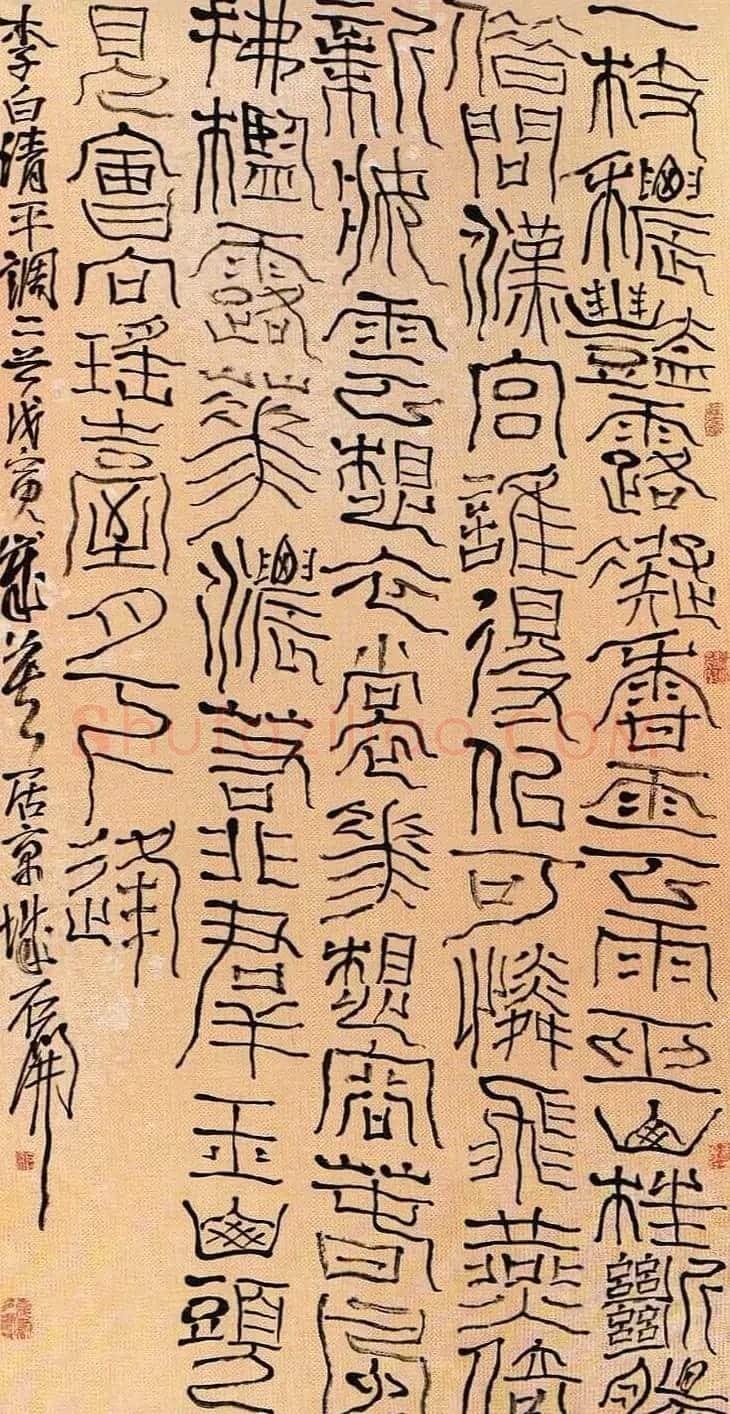 一枝穠豔露凝香雲雨巫山枉斷腸
借問漢宮誰得似可憐飛燕倚
新妝雲想衣裳花想容春風
拂檻露華濃若非群玉山頭
見會向瑤臺月下逢
李白清平調二首戊寅歲暮居京城石開